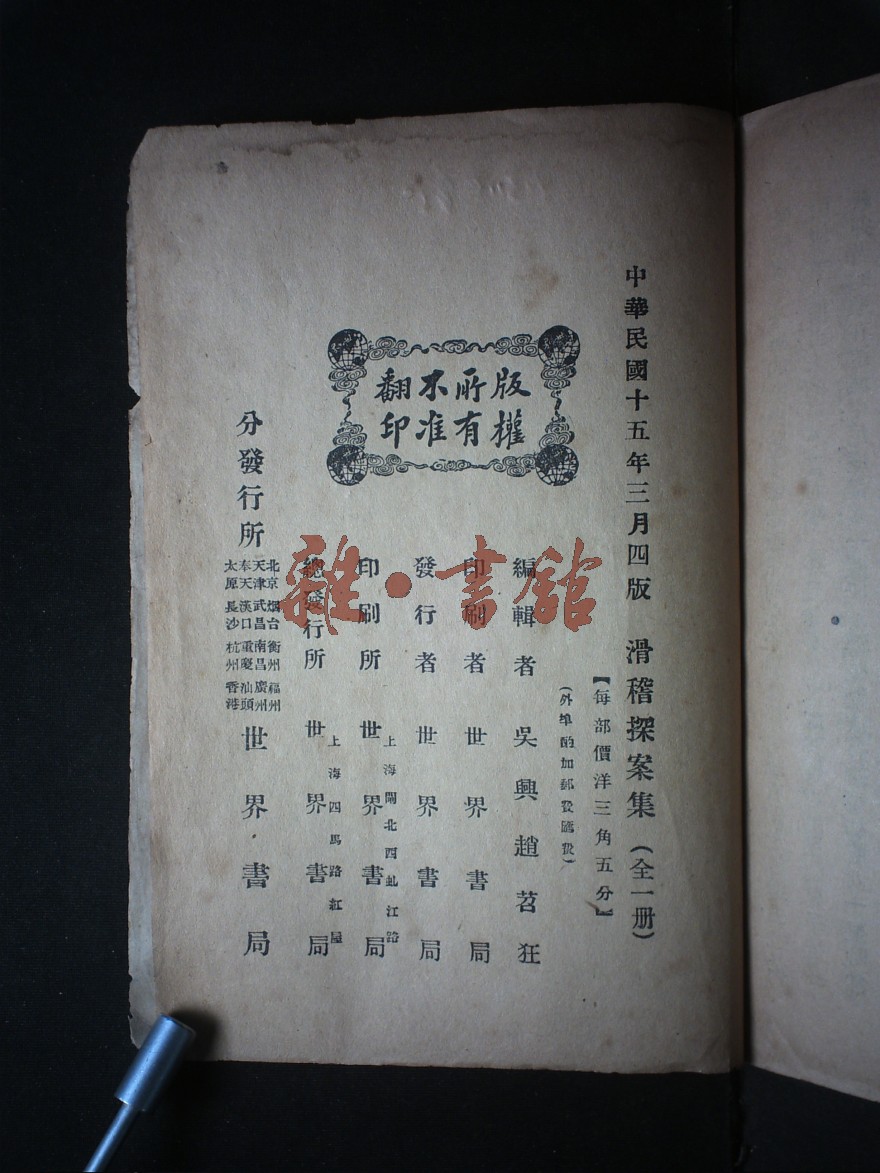 中華民國十五年三月四版
滑稽探案集（全一册）
【每部價洋三角五分】
（外埠酌加郵費匯費）
版權所有
不准翻印
編輯者 吳興趙苕狂
印刷者 世界書局
發行者 世界書局
印刷所 上海閘北西虬江路 世界書局
總發行所 上海四馬路紅屋 世界書局
分發行所
北京 烟台 衡州 福州
天津 武昌 南昌 廣州
奉天 漢口 重慶 汕頭
太原 長沙 杭州 香港
世界書局
雜·書館